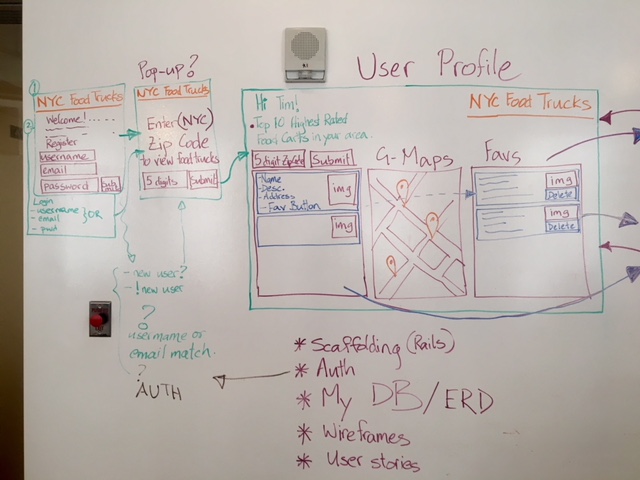 User Profile
Pop-up?
1
NYC Food Trucks
Welcome!
2
Register
username
email
password
Login
- username
- email
- pwd
} OR
NYC Food Trucks
Enter (NYC)
Zip Code
to view food trucks
5 digits Submit
- new user?
- ! new user
?
username or
email match.
?
AUTH
Hi Tim!
NYC Food Trucks
• Top 10 Highest Rated
Food Carts in your area.
5 digit Zipcode Submit
- Name
- Desc.
- Address
- Fav Button
img
img
G-Maps
Favs
img
Delete
img
Delete
* Scaffolding (Rails)
* Auth
* My DB/ERD
* Wireframes
* User stories